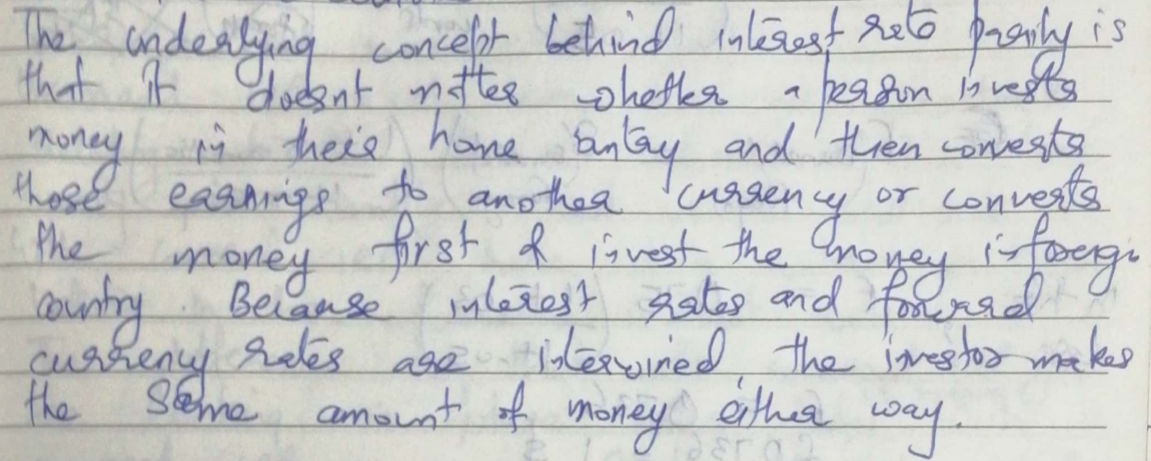 The underlying concept behind interest rate parity is
that it doesnt matter whether a person invests
money in their home country and then converts
those earnings to another currency or converts
the money first & invest the money in foreign
country. Because interest rates and forward
currency rates are interwined, the investor makes
the same amount of money either way.